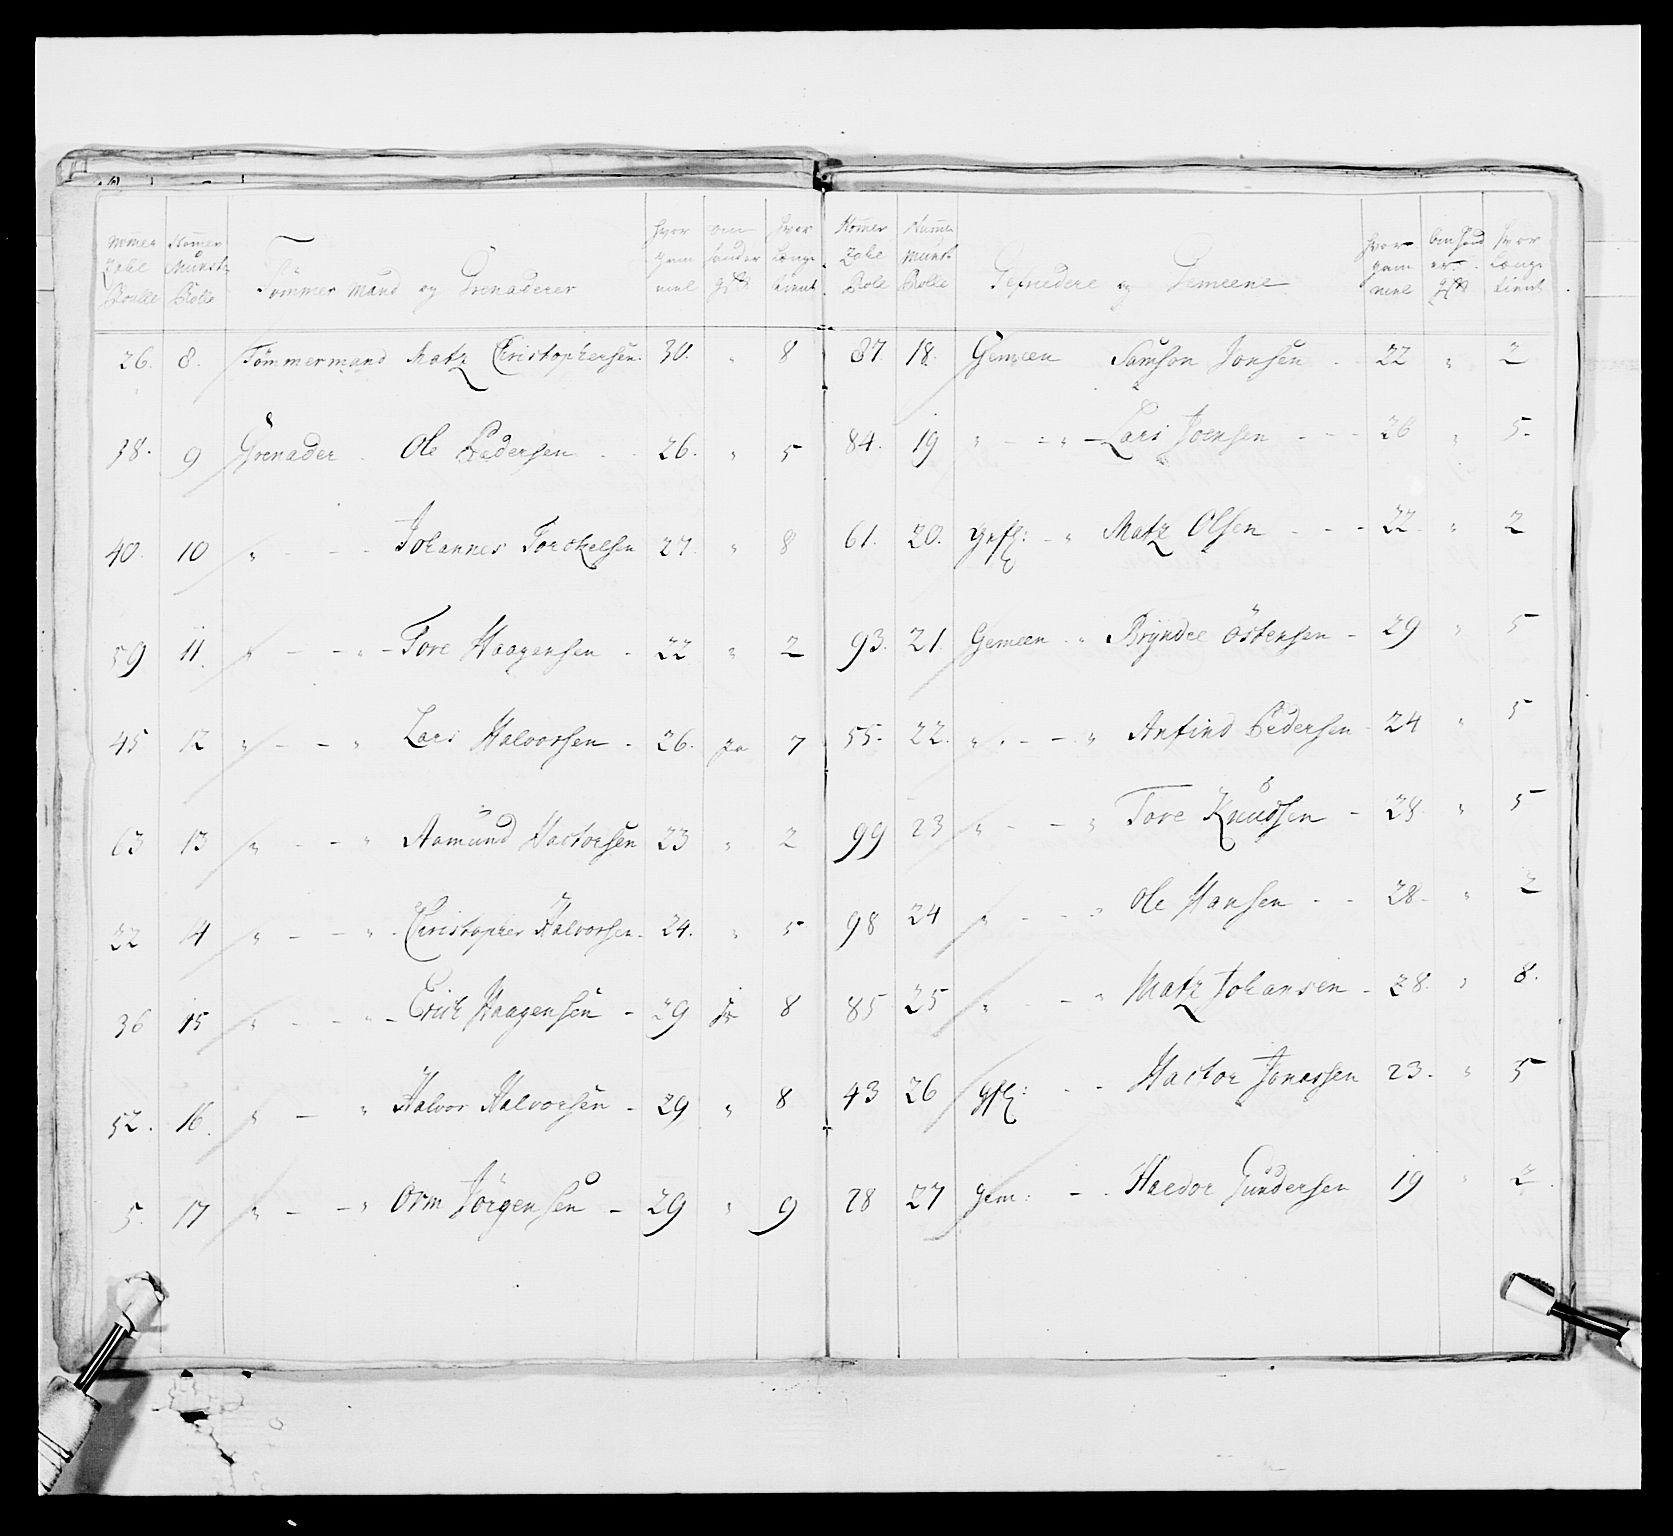 Nomer Zahl Roulle | Nomer Münst. Rolle | Tömmer mand og Grenaderer | hvor gam mel | om hander gift | hvor Længe tient
26. 8. Tömmermand Matz Christophersen. 30. " 8
38. 9 Grenader Ole Pedersen 26. " 5
40. 10 " - - Johannes Torckelsen 27. " 8
59 11. " - - " - Tore Haagensen - 22 " 2
45 12 " - - " Lars Halvorsen - 26. ja 7
63 13 " - - " Aamund Hactorsen 23 " 2
22 14 " - - " - Christopher Halvorsen - 24. " 5
36 15 " - - " - Erich Haagensen - 29 ja 8
52. 16. " - " Halvor Halvorsen - 29 " 8
5. 17 " - - " Orm Jörgensen - 29 " 9
Nomer Zahl Role | Numer Münst. Rolle | Gefriedere og Gemeene | hvor gam mel | om hand er gift | hvor Længe tient
87 18. Gemeen Samson Jonsen - 22 " 2
84. 19 " - - " - Lars Joensen - - - 26 " 5-
61. 20. Gefr: - " Matz Olsen - - - 22 " 2
93. 21. Gemeen " Bryndee Östensen - 29 " 5
55- 22. " - - " Anfind Pedersen - 24 " 5
99 23 " - - " Tore Knudsen - 28. " 5
98 24 " - - " Ole Hansen - - 28. " 2
85 25 " - - " Matz Johansen - 28. " 8.
43 26 gfr: - - Hactor Jonassen 23. " 5
28 27 gem: - - Haedor Gundersen 19 " 2